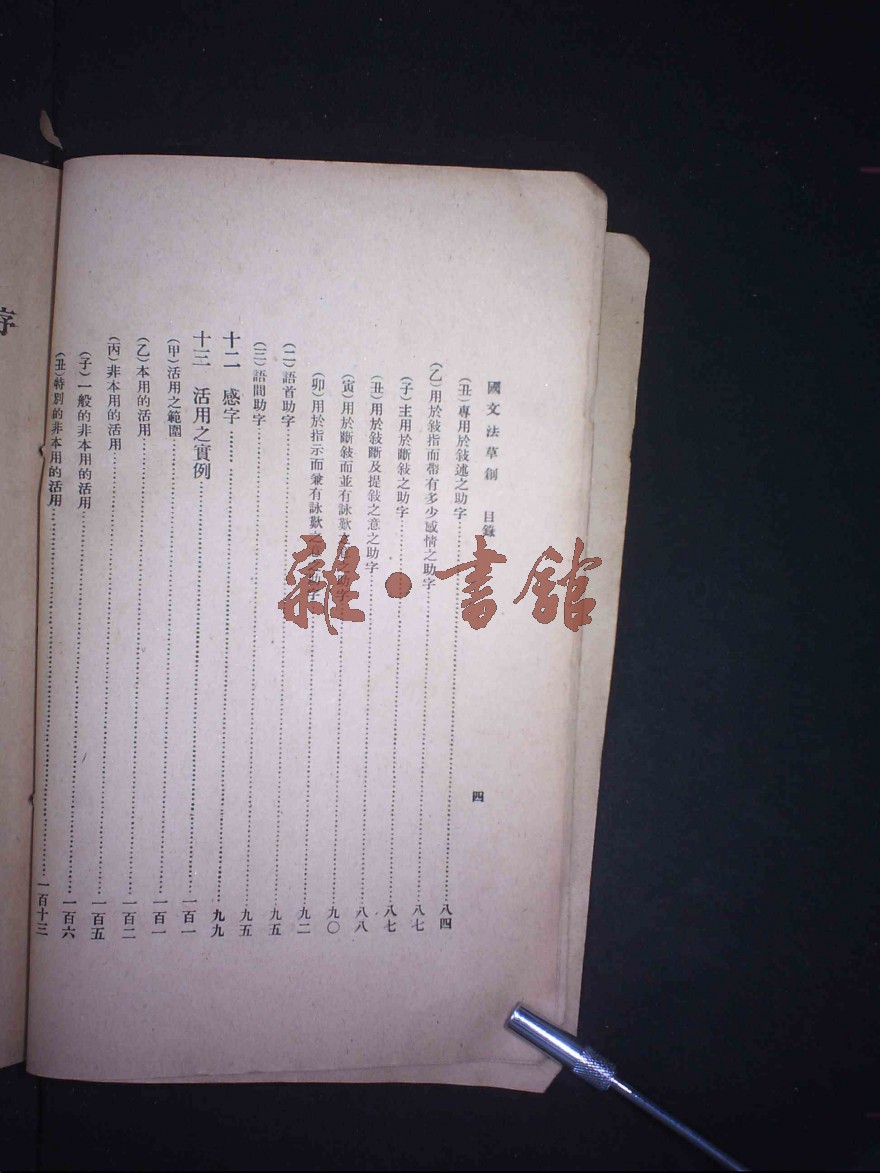 國文法草創　目錄
四
(丑)專用於敍述之助字……八四
(乙)用於敍指而帶有多少感情之助字……八七
(子)主用於斷敍之助字……八七
(丑)用於敍斷及提敍之意之助字……八八
(寅)用於斷敍而並有詠歎之意之助字……九〇
(卯)用於指示而兼有詠歎之意之助字……九二
(二)語首助字……九五
(三)語間助字……九五
十二　感字……九九
十三　活用之實例……一百一
(甲)活用之範圍……一百一
(乙)本用的活用……一百二
(丙)非本用的活用……一百五
(子)一般的非本用的活用……一百六
(丑)特別的非本用的活用……一百十三
序
雜·書館